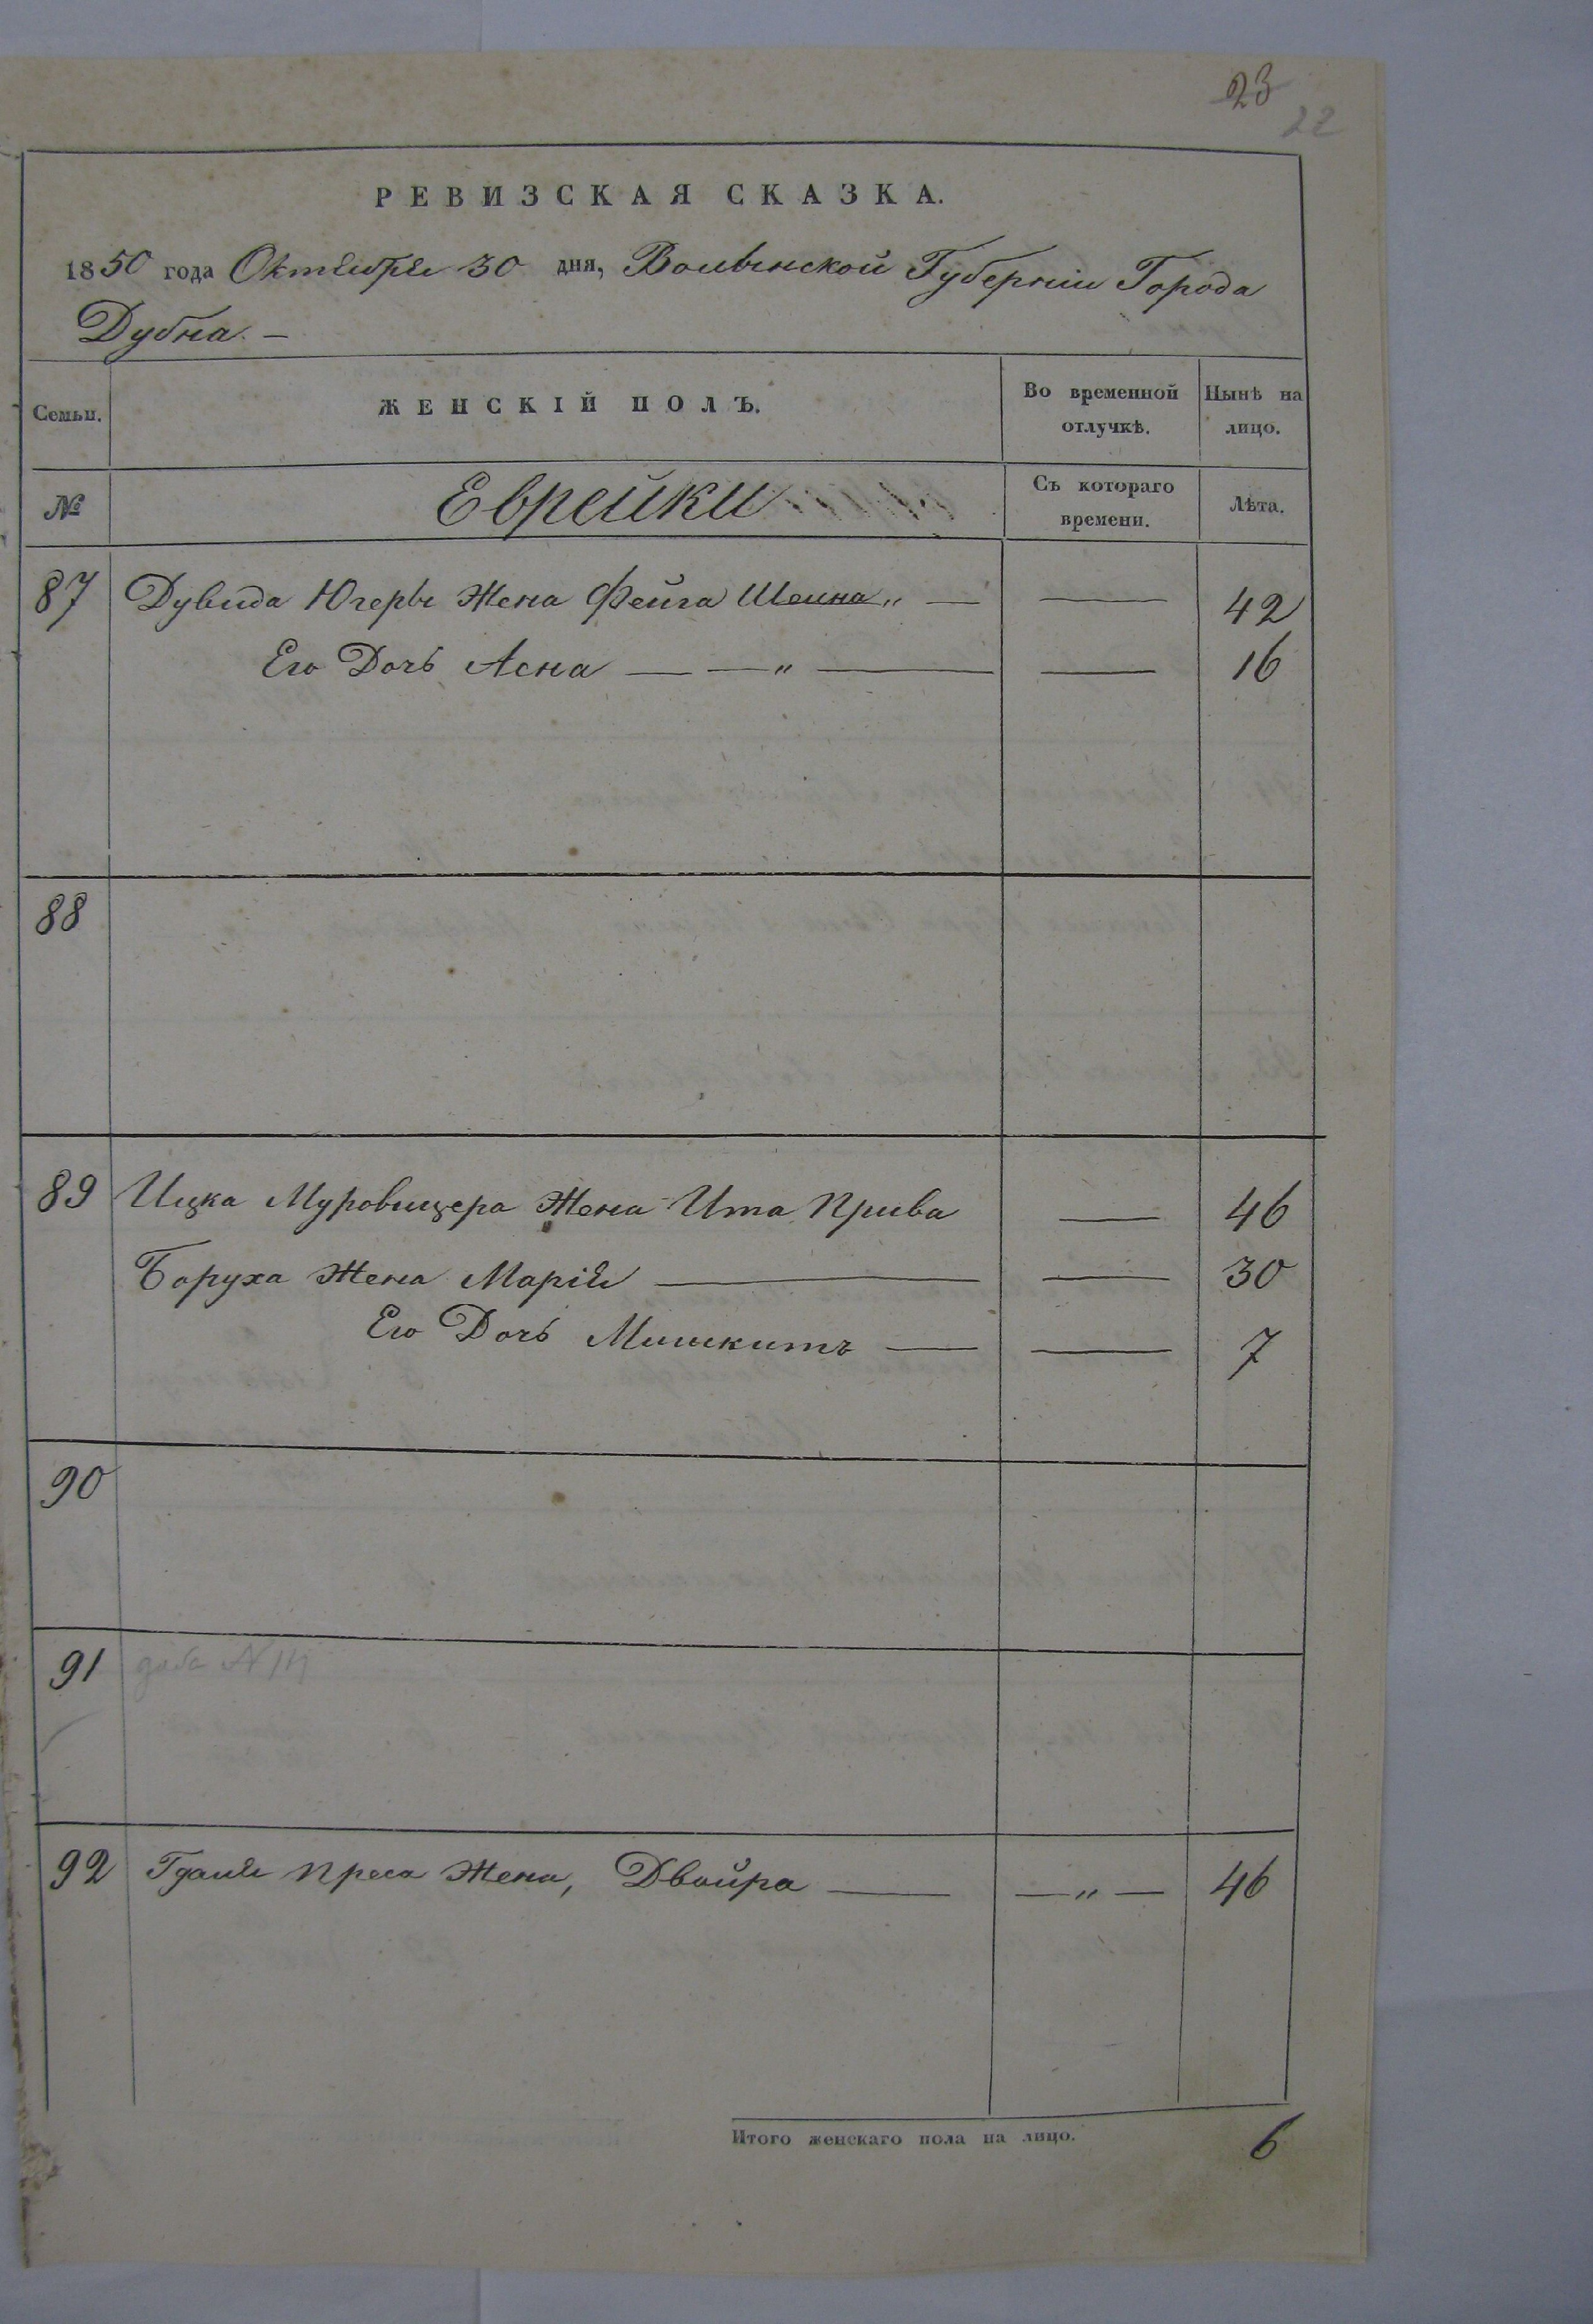 23
22
РЕВИЗСКАЯ СКАЗКА.
1850 года Октября 30 дня, Волынской Губерніи Города
Дубна. —
Семьи. ЖЕНСКІЙ ПОЛЪ. Во временной отлучкѣ. Нынѣ на лицо.
№ Еврейки Съ котораго времени. Лѣта.
87 Дувида Югеры Жена Фейга Шеина „ — — 42
Его Дочь Асна — — „ — — 16
88
89 Ицка Муровицера Жена Ита Прива — 46
Боруха Жена Марія — — 30
Его Дочь Мишкитъ — — 7
90
91
92 Гдаля Преса Жена, Двойра — — „ — 46
Итого женскаго пола на лицо. 6